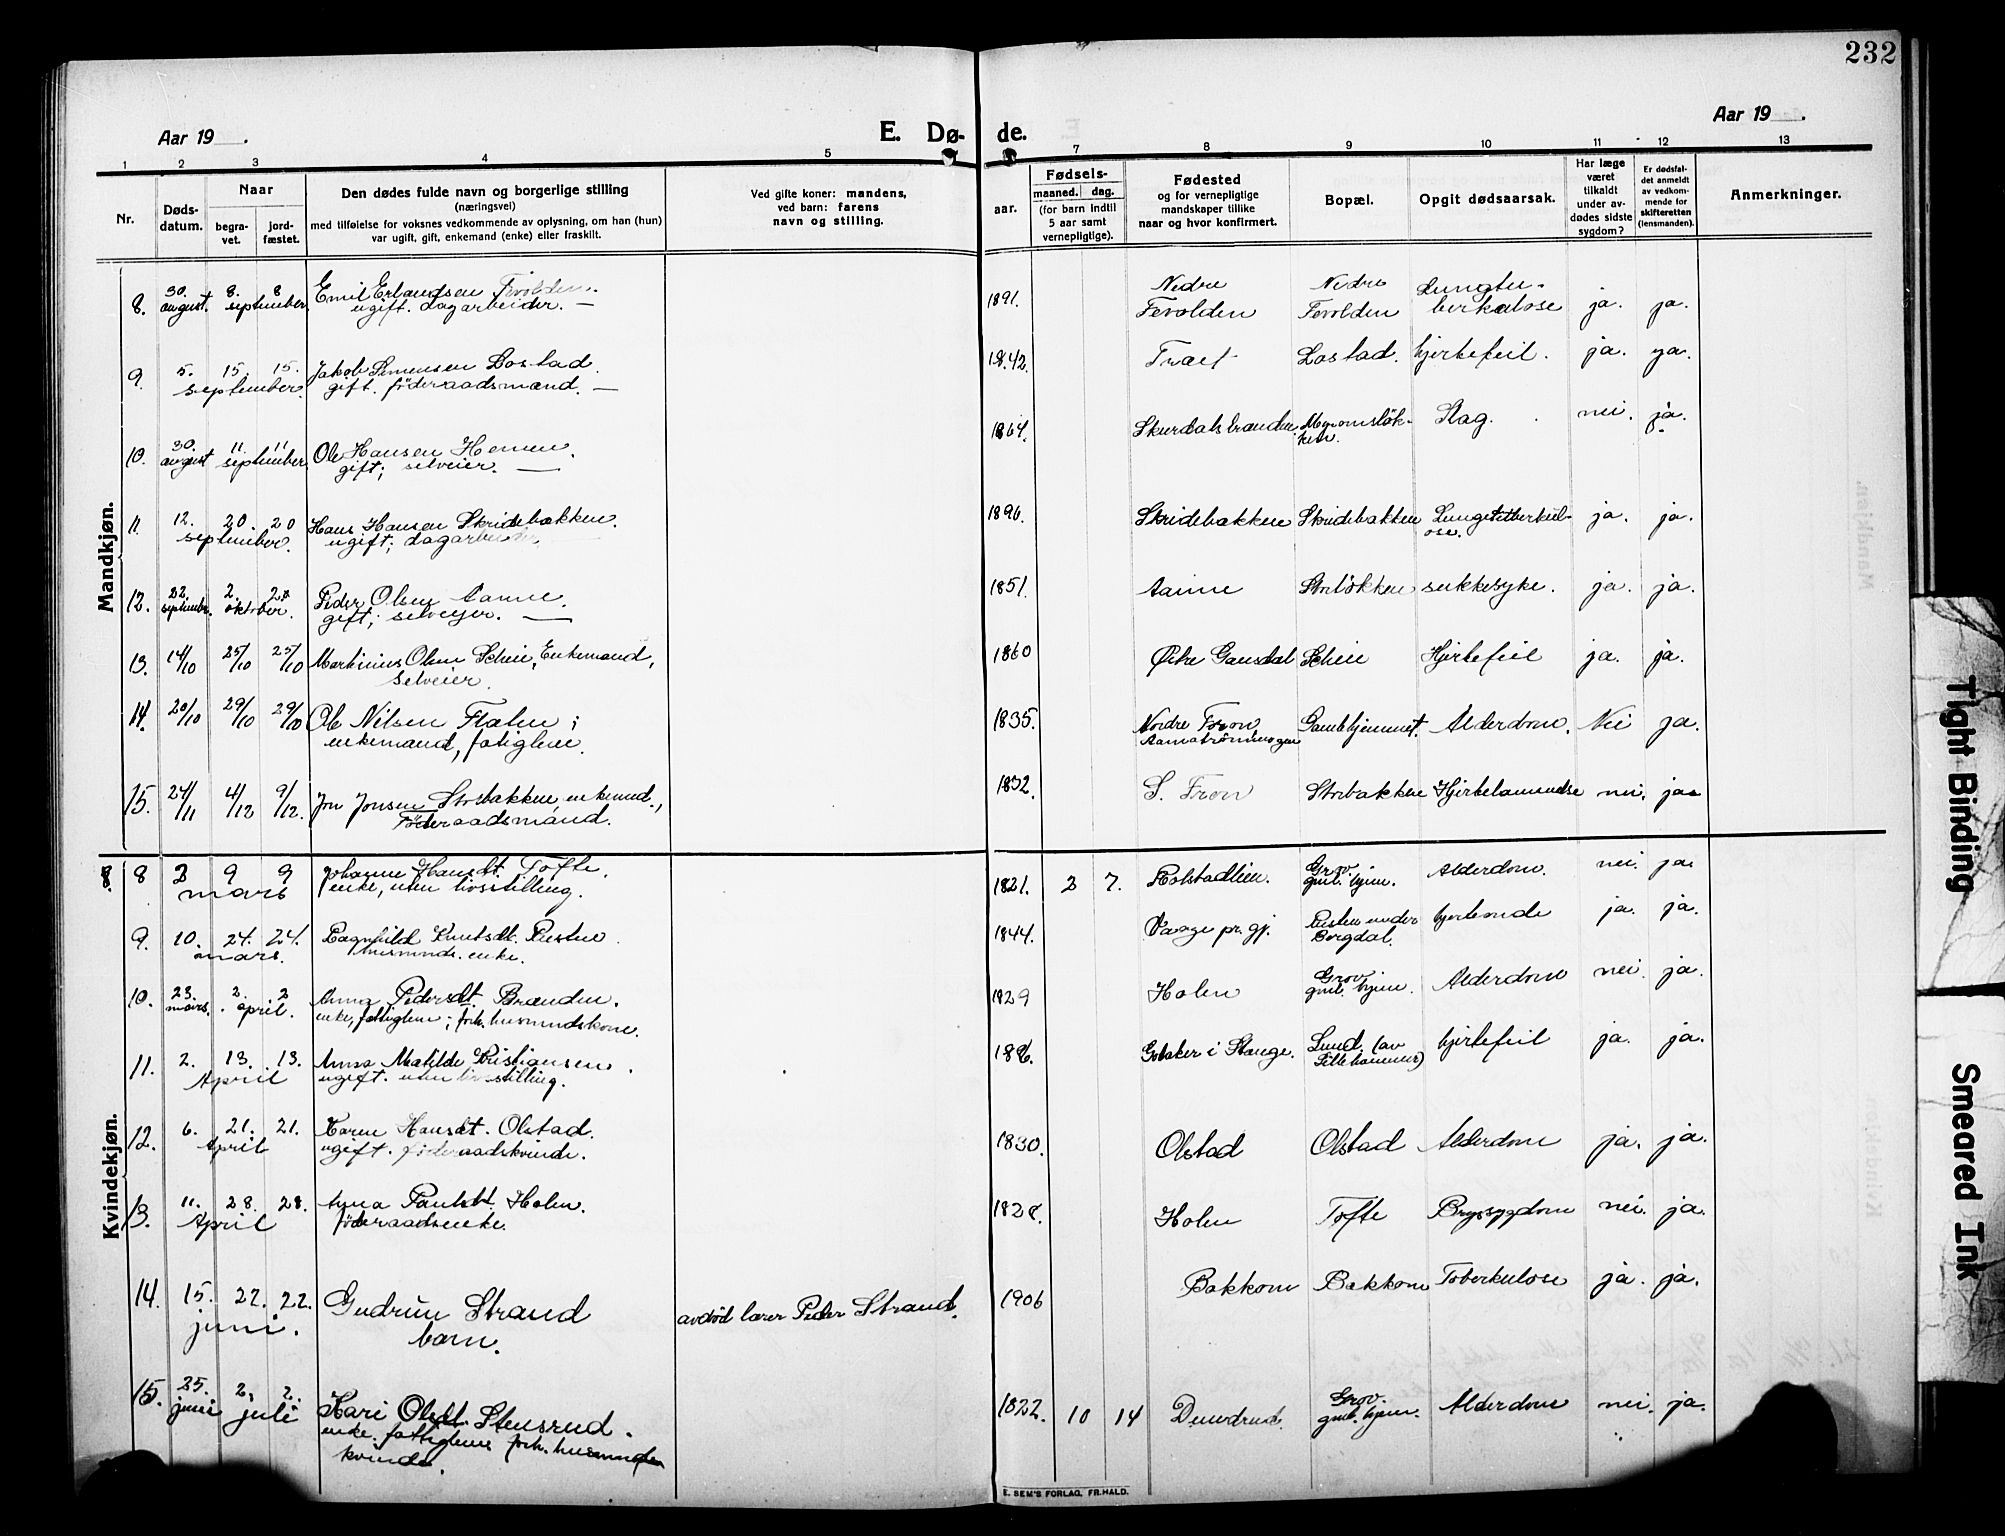 232
Aar 19 .
E. Dø- de.
Aar 19 .
1 2 3 4 5 7 8 9 10 11 12 13
Nr.
Døds-
datum.
Naar
begra-
vet.
jord-
fæstet.
Den dødes fulde navn og borgerlige stilling
(næringsvei)
med tilføielse for voksnes vedkommende av oplysning, om han (hun)
var ugift, gift, enkemand (enke) eller fraskilt.
Ved gifte koner: mandens,
ved barn: farens
navn og stilling.
Fødsels-
aar.
maaned. dag.
(for barn indtil
5 aar samt
vernepligtige).
Fødested
og for vernepligtige
mandskaper tillike
naar og hvor konfirmert.
Bopæl.
Opgit dødsaarsak.
Har læge
været
tilkaldt
under av-
dødes sidste
sygdom?
Er dødsfal-
det anmeldt
av vedkom-
mende for
skifteretten
(lensmanden).
Anmerkninger.
Mandkjøn.
8. 30. august. 8. 8 september. Emil Erlandsen Fevolden.
ugift. dagarbeider. —
1891. Nedre Fevolden Nedre Fevolden Lungtu-
berkulose ja. ja.
9. 5. 15. 15. september. Jakob Simensen Lostad.
gift. föderaadsmand. —
1842. Træet Lostad. hjertefeil. ja. ya.
10. 30. august 11. 11 september. Ole Hansen Hemen.
gift; selveier. —
1864. Slag. nei. ja.
11. 12. 20. 20 september. Hans Hansen Skridebakken.
ugift; dagarbeider.
1896. Skridebakken Skridebakken ja. ja.
12. 22. septembr. 2. 2. oktober. Peder Olsen Aanne.
gift; selveyer. —
1851. Aanne sukkesyke. ja. ja.
13. 14/10 25/10 25/10 Martinius Olsen Scheie, Enkemand,
selveier.
1860 Østre Gausdal Scheie Hjertefeil ja. ja.
14. 20/10 29/10 29/10 Ole Nilsen Flaten;
enkemand, fatiglem.
1835. Nordre Fron Gamlehjemmet. Alderdom. Nei ja.
15. 24/11 4/12 9/12. Jon Jonsen Storbakken, enkemd.,
Föderaadsmand.
1832. S. Fron Storbakken Hjertelammelse nei. ja
Kvindekjøn.
8 2 9 9 mars Johanne Hansdt. Tofte.
enke, uten livsstilling.
1821. 2 7. Rolstadlien. Grov
gml. hjem. Alderdom. nei. ja.
9. 10. 24. 24. mars. Ragnhild Knutsdt. Risten.
husmnds. enke.
1844. Vaage pr. gj. Risten under
Bergdal. ja. ja.
10. 23. mars. 2. 2 april. Anna Pedersdt. Brænden.
enke, fattiglem; forh. husmndskone.
1829 Holen Grov
gml. hjem. Alderdom nei. ja.
11. 2. 13. 13. April Anna Matilde Kristiansen.
ugift. uten livsstilling.
1886. i Stange. Lund. (av
Lillehammer) hjertefeil ja. ja.
12. 6. 21. 21. April Karen Hansdt. Olstad.
ugift. föderaadskvinde.
1830. Olstad Olstad Alderdom ja. ja.
13. 11. 28. 28. April Anna Paulsdt. Holen.
föderaadsenke.
1828. Holen Tofte Brystsygdom nei. ja.
14. 15. 22. 22. juni. Gudrun Strand
barn.
avdöd lærer Peder Strand.
1906 Bakkom Bakkom Toberkulose ja. ja.
15. 25. juni 2. 2. juli Kari Olsdt. Stensrud.
enke. fattiglem forh. husmands
kvinde.
1822. 10 14 Grov.
gml. hjem. Alderdom nei. ja.
E. SEM'S FORLAG, FR.HALD.
Tight Binding
Smeared Ink